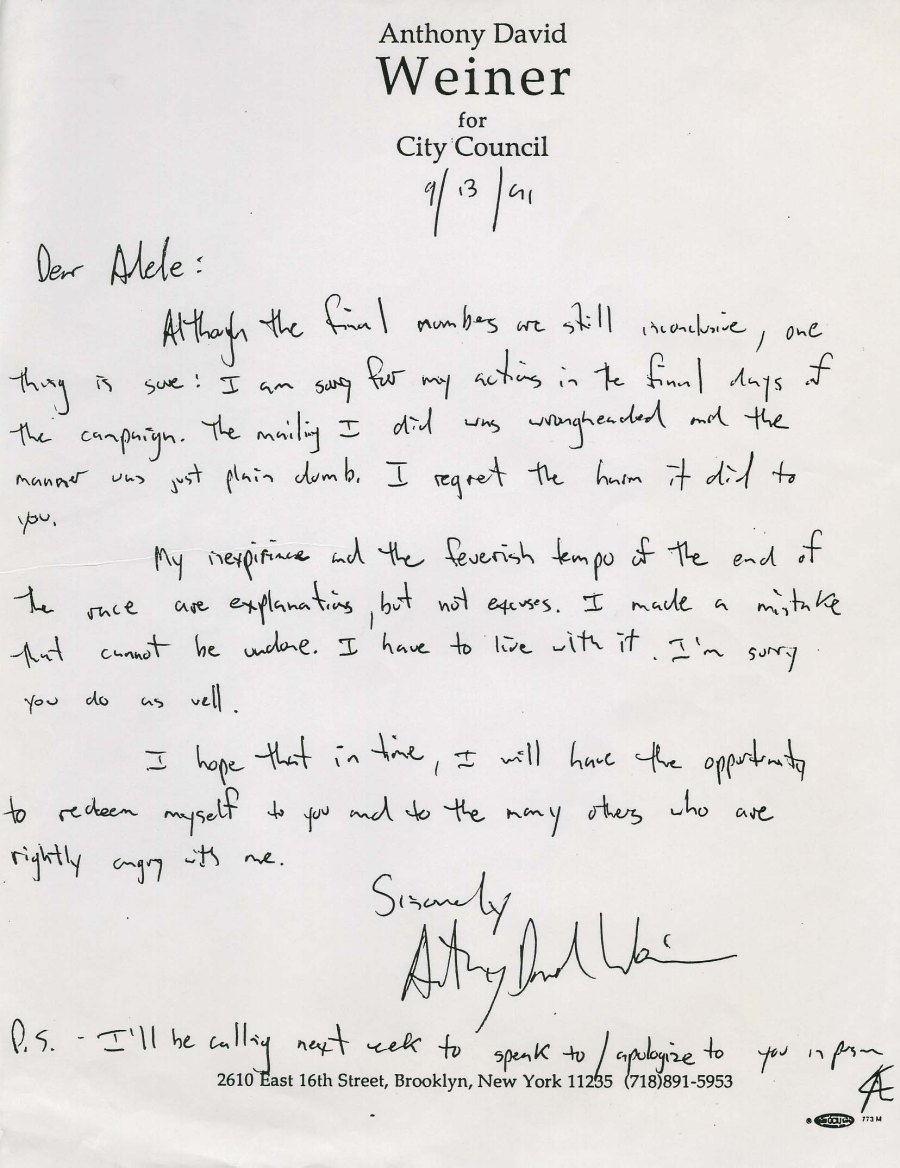 Anthony David
Weiner
for
City Council
9/13/91
Dear Adele:
Although the final numbers are still inconclusive, one
thing is sure: I am sorry for my actions in the final days of
the campaign. The mailing I did was wrongheaded and the
manner was just plain dumb. I regret the harm it did to
you.
My inexpirince and the feverish tempo of the end of
the race are explanations, but not excuses. I made a mistake
that cannot be undone. I have to live with it. I'm sorry
you do as well.
I hope that in time, I will have the opportunity
to redeem myself to you and to the many others who are
rightly angry with me.
Sincerely
Anthony David Weiner
P.S. - I'll be calling next week to speak to/apologize to you in person
2610 East 16th Street, Brooklyn, New York 11235 (718)891-5953
773 M